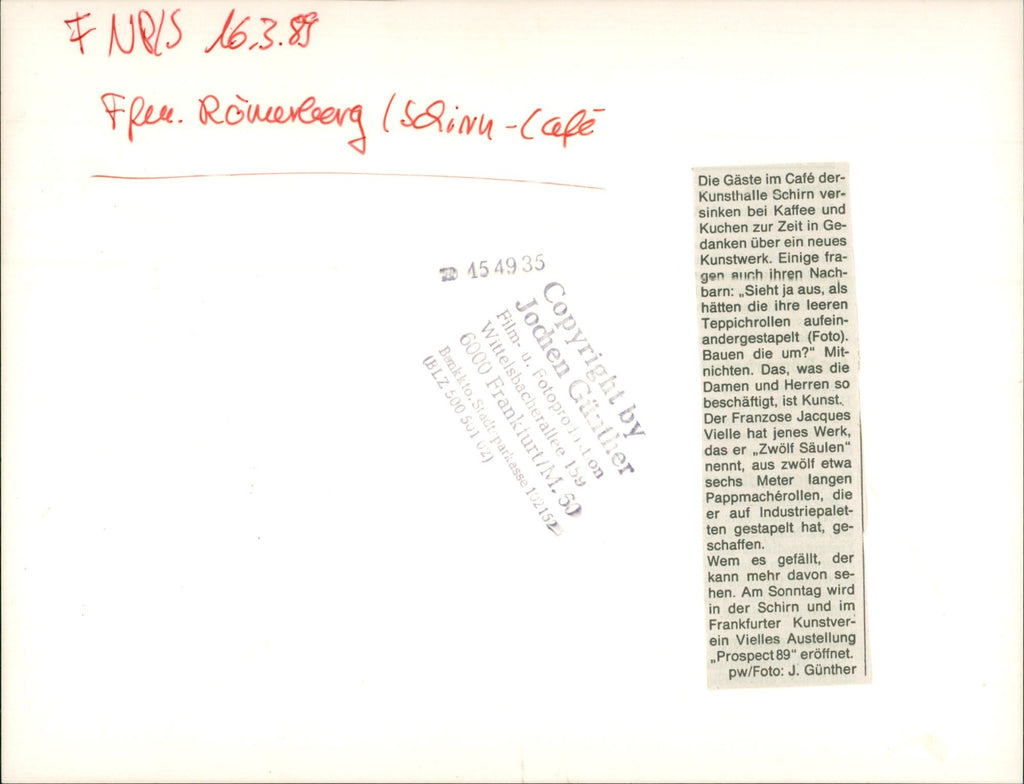 F NP/S 16.3.89
Ffm. Römerberg / Schirn-Café
☎ 154935
Copyright by
Jochen Günther
Film- u. Fotoproduktion
Wittelsbacherallee 159
6000 Frankfurt/M. 60
Bankkto. Stadtsparkasse 152152
(BLZ 500 501 02)
Die Gäste im Café der-
Kunsthalle Schirn ver-
sinken bei Kaffee und
Kuchen zur Zeit in Ge-
danken über ein neues
Kunstwerk. Einige fra-
gen auch ihren Nach-
barn: „Sieht ja aus, als
hätten die ihre leeren
Teppichrollen aufein-
andergestapelt (Foto).
Bauen die um?“ Mit-
nichten. Das, was die
Damen und Herren so
beschäftigt, ist Kunst.
Der Franzose Jacques
Vielle hat jenes Werk,
das er „Zwölf Säulen“
nennt, aus zwölf etwa
sechs Meter langen
Pappmachérollen, die
er auf Industriepalet-
ten gestapelt hat, ge-
schaffen.
Wem es gefällt, der
kann mehr davon se-
hen. Am Sonntag wird
in der Schirn und im
Frankfurter Kunstver-
ein Vielles Austellung
„Prospect 89“ eröffnet.
pw/Foto: J. Günther